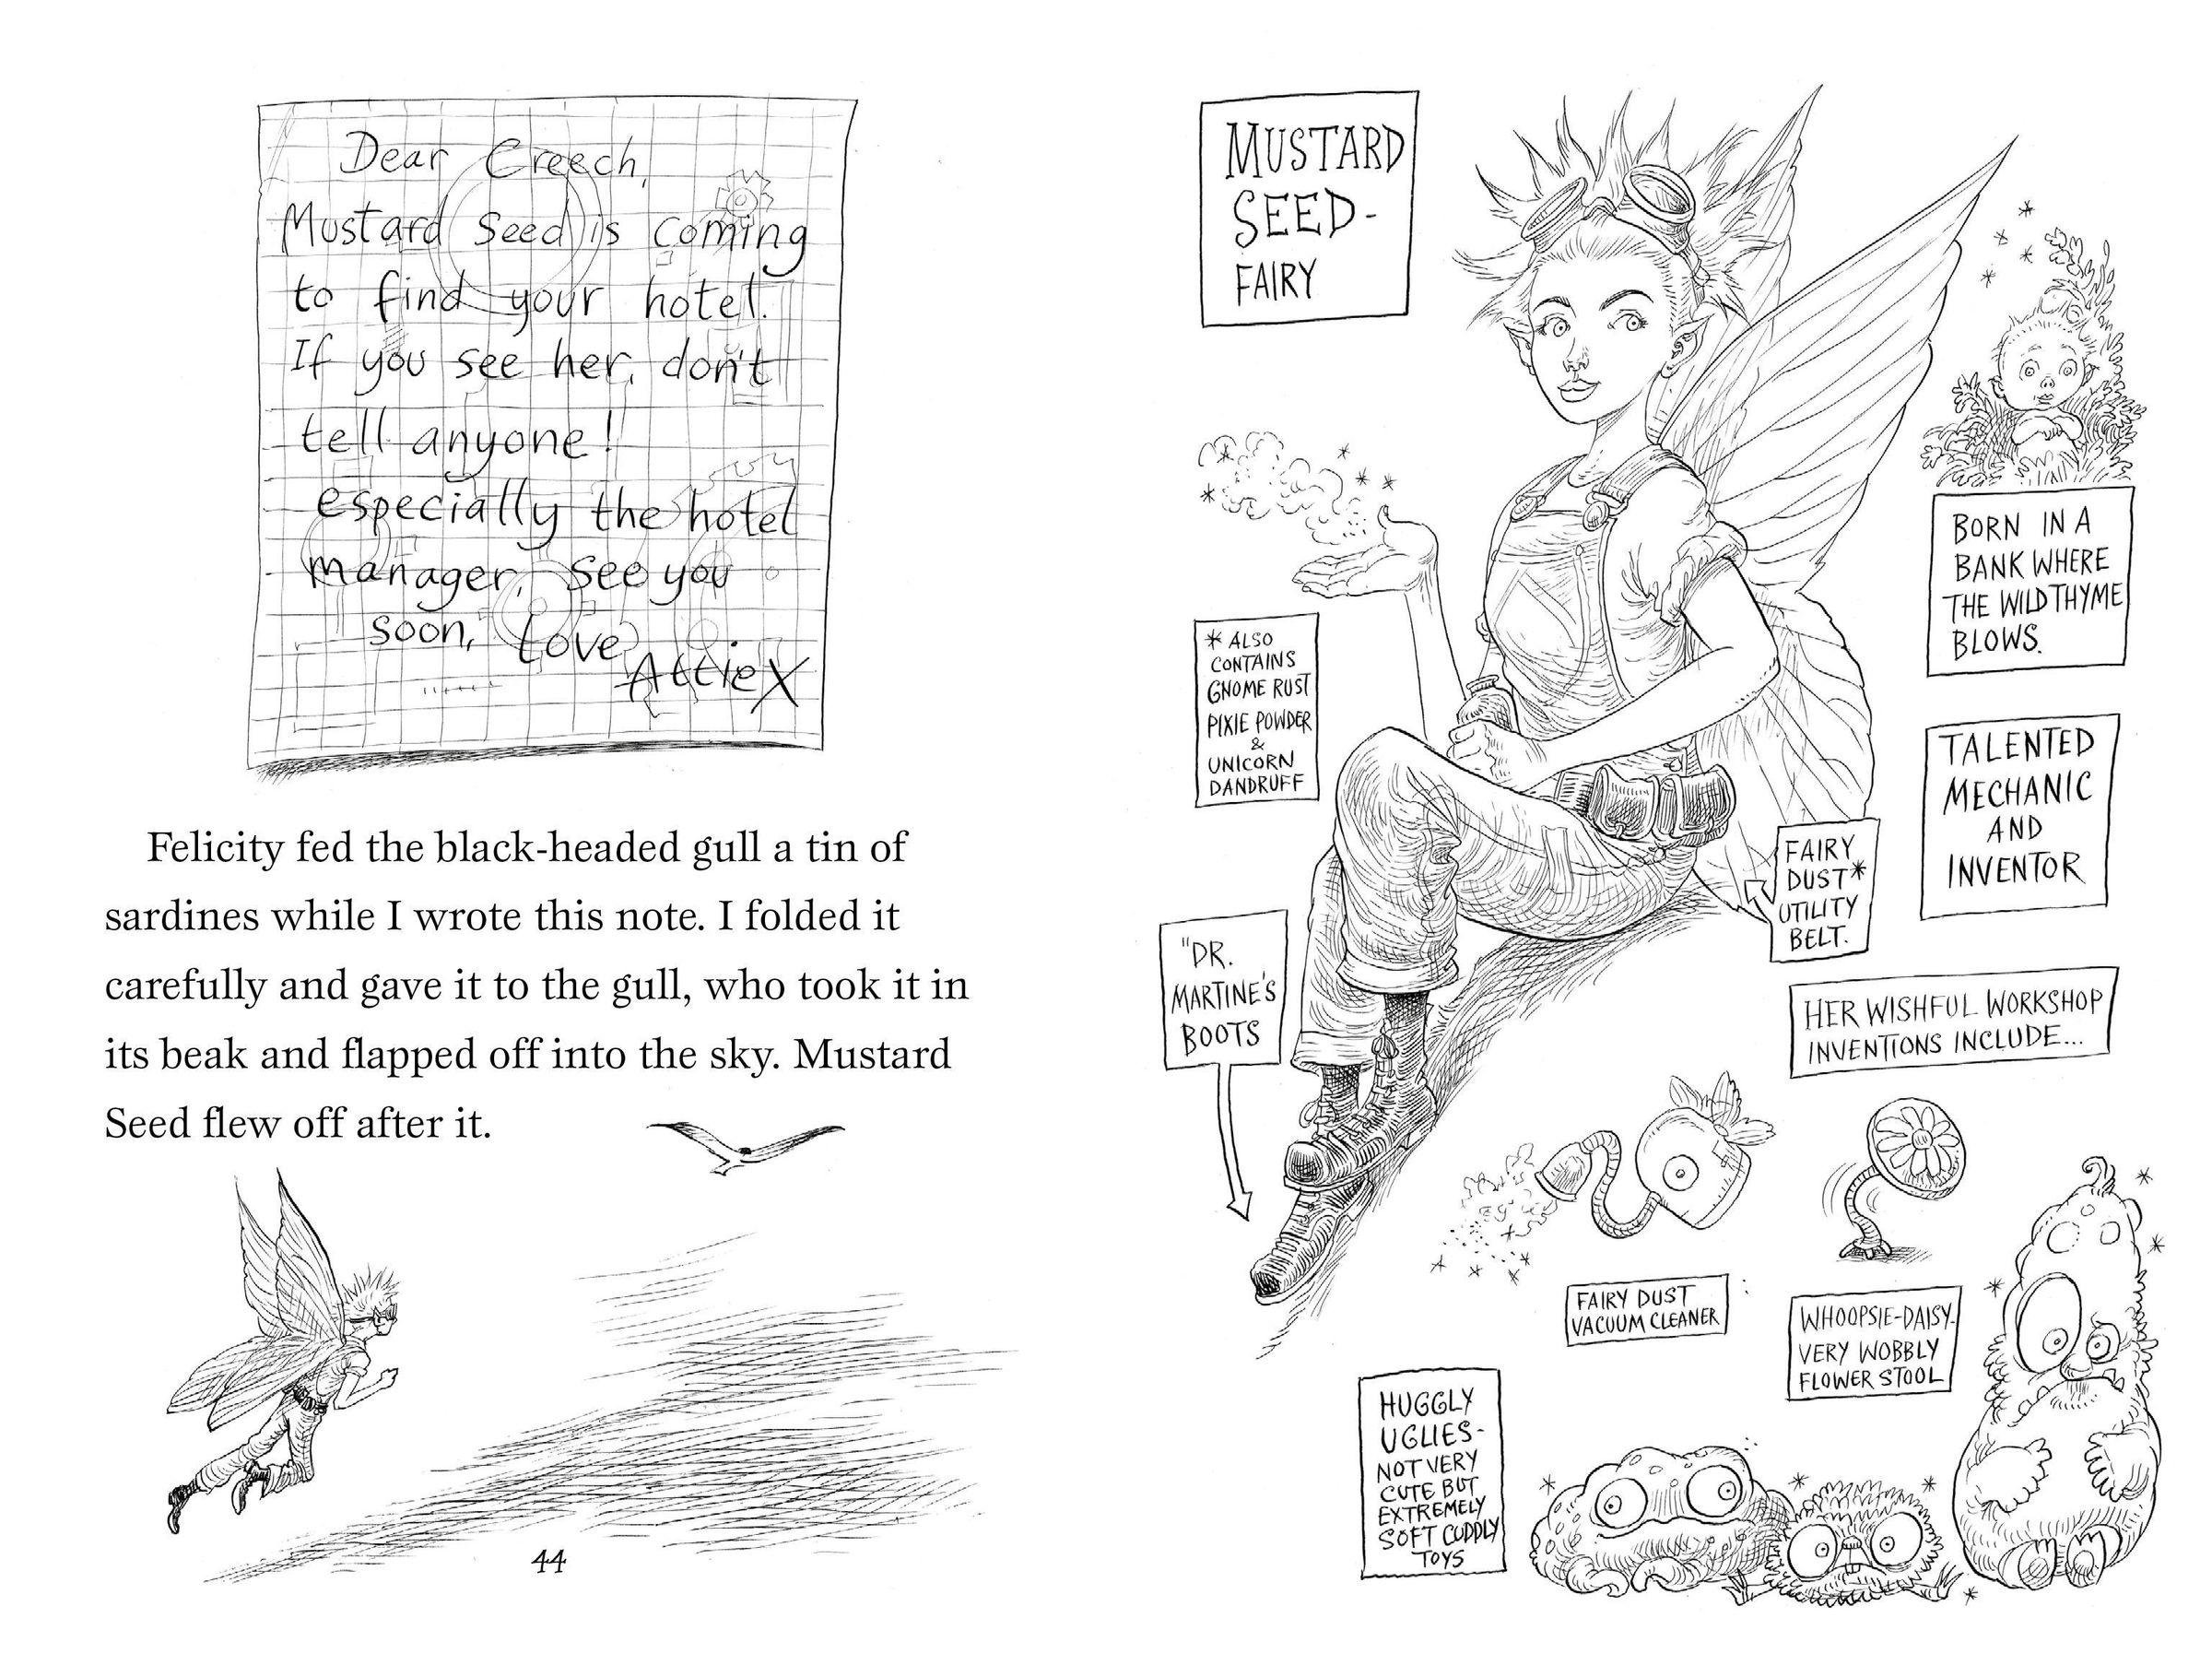 Dear Creech,
Mustard Seed is coming
to find your hotel.
If you see her, don't
tell anyone!
especially the hotel
manager, see you
soon, Love
AttieX
Felicity fed the black-headed gull a tin of
sardines while I wrote this note. I folded it
carefully and gave it to the gull, who took it in
its beak and flapped off into the sky. Mustard
Seed flew off after it.
44
MUSTARD
SEED-
FAIRY
BORN IN A
BANK WHERE
THE WILD THYME
BLOWS.
* ALSO
CONTAINS
GNOME RUST
PIXIE POWDER
&
UNICORN
DANDRUFF
TALENTED
MECHANIC
AND
INVENTOR
FAIRY
DUST*
UTILITY
BELT.
"DR.
MARTINE'S
BOOTS
HER WISHFUL WORKSHOP
INVENTIONS INCLUDE...
FAIRY DUST
VACUUM CLEANER
WHOOPSIE-DAISY-
VERY WOBBLY
FLOWER STOOL
HUGGLY
UGLIES-
NOT VERY
CUTE BUT
EXTREMELY
SOFT CUDDLY
TOYS